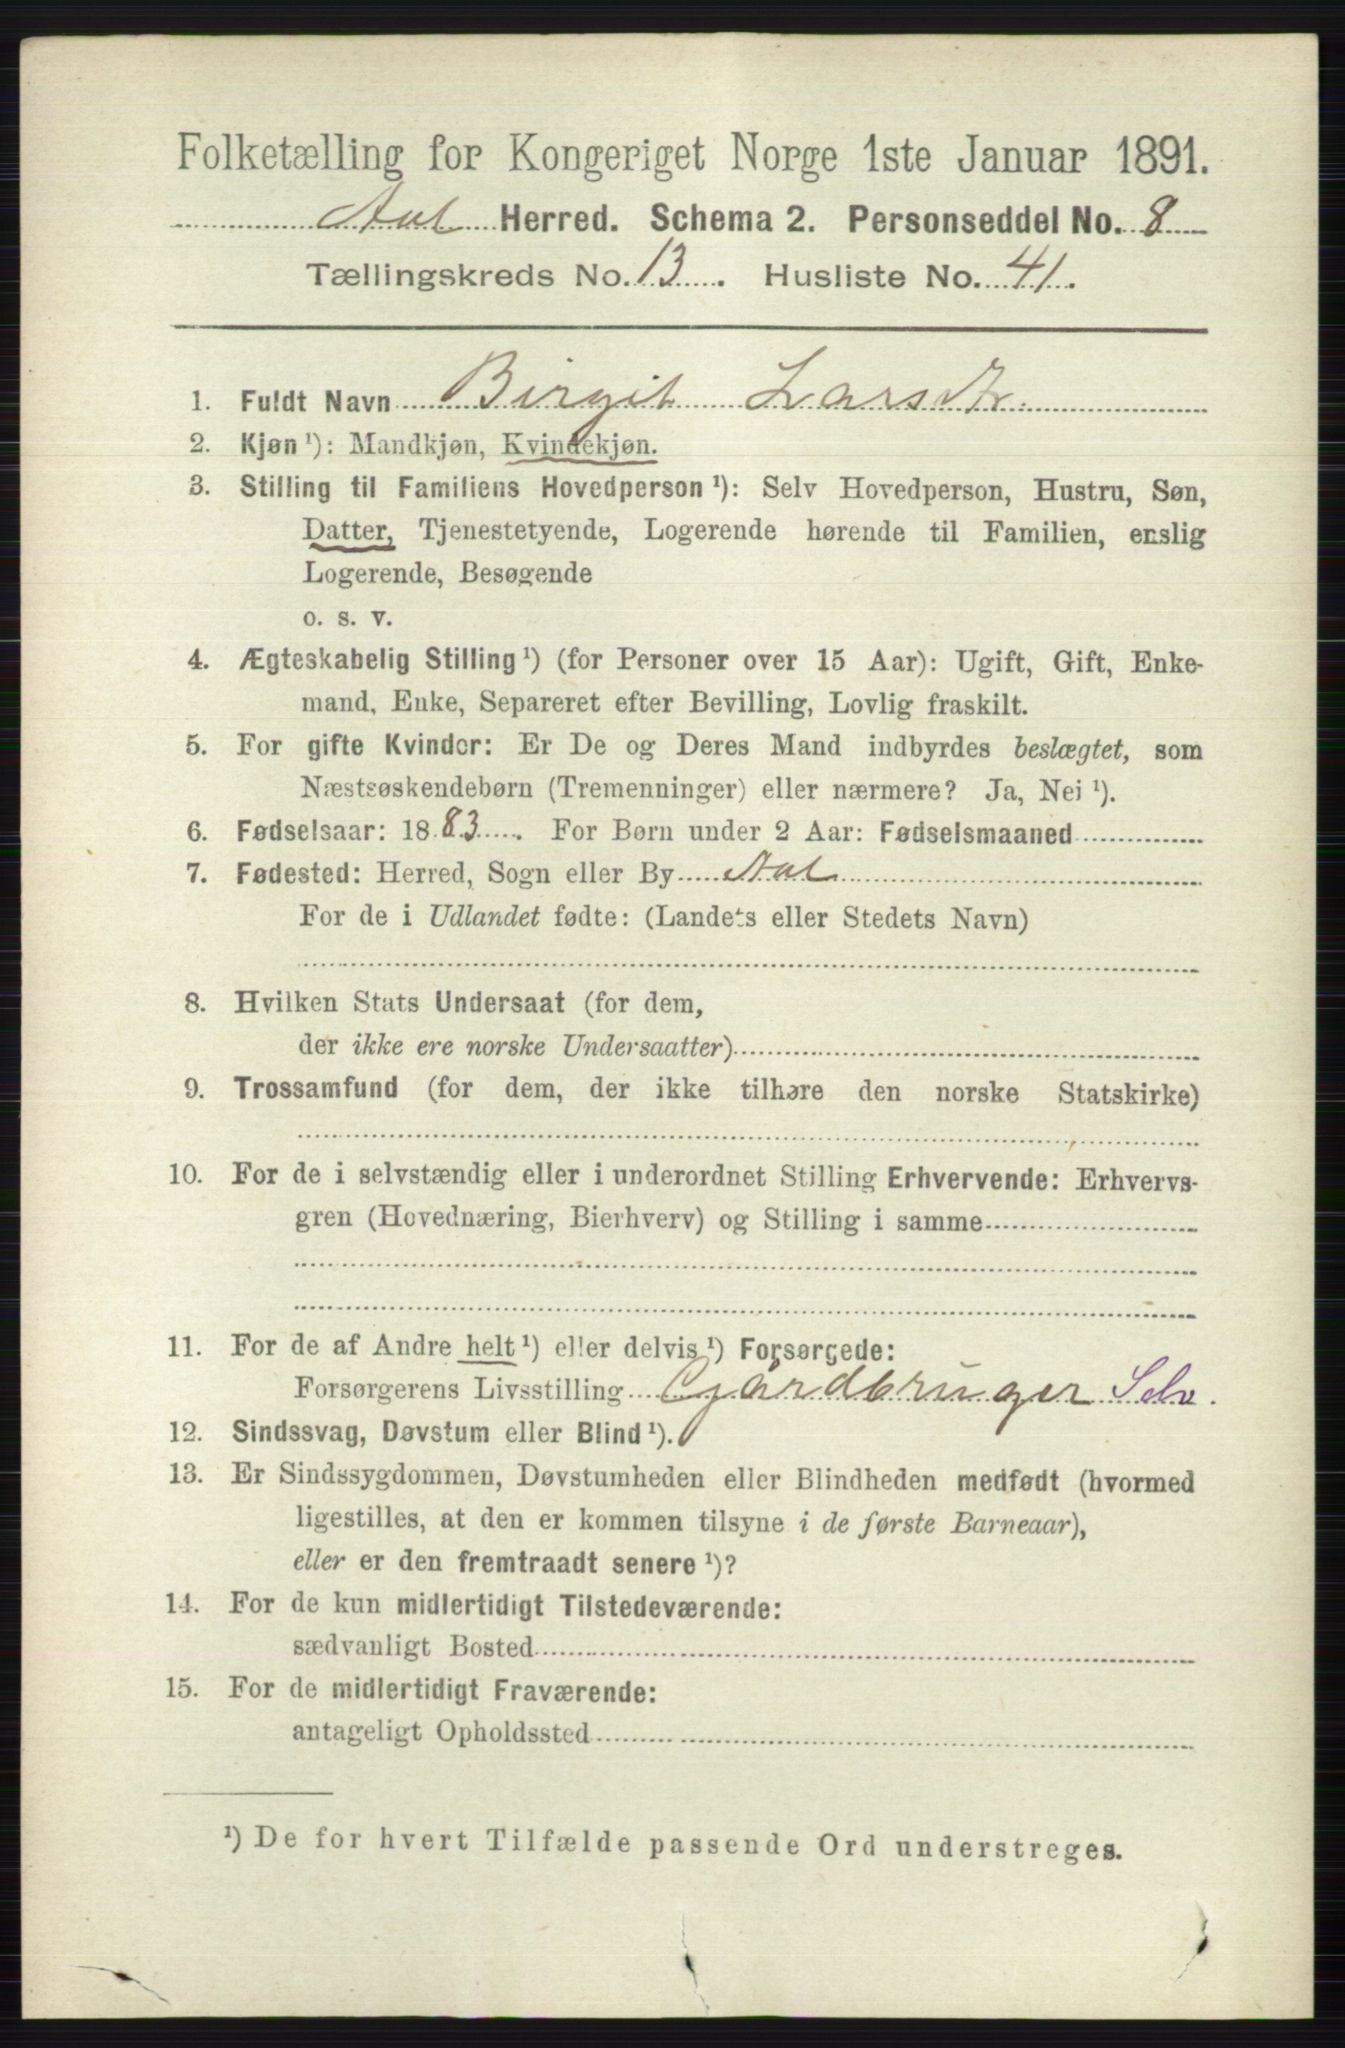 Folketælling for Kongeriget Norge 1ste Januar 1891.
Aal Herred. Schema 2. Personseddel No. 8
Tællingskreds No. 13. Husliste No. 41.
1. Fuldt Navn Birgit Larsdtr.
2. Kjøn ¹): Mandkjøn, Kvindekjøn.
3. Stilling til Familiens Hovedperson ¹): Selv Hovedperson, Hustru, Søn,
Datter, Tjenestetyende, Logerende hørende til Familien, enslig
Logerende, Besøgende
o. s. v.
4. Ægteskabelig Stilling ¹) (for Personer over 15 Aar): Ugift, Gift, Enke-
mand, Enke, Separeret efter Bevilling, Lovlig fraskilt.
5. For gifte Kvinder: Er De og Deres Mand indbyrdes beslægtet, som
Næstsøskendebørn (Tremenninger) eller nærmere? Ja, Nei ¹).
6. Fødselsaar: 1883. For Børn under 2 Aar: Fødselsmaaned
7. Fødested: Herred, Sogn eller By Aal
For de i Udlandet fødte: (Landets eller Stedets Navn)
8. Hvilken Stats Undersaat (for dem,
der ikke ere norske Undersaatter)
9. Trossamfund (for dem, der ikke tilhøre den norske Statskirke)
10. For de i selvstændig eller i underordnet Stilling Erhvervende: Erhvervs-
gren (Hovednæring, Bierhverv) og Stilling i samme
11. For de af Andre helt ¹) eller delvis ¹) Forsørgede:
Forsørgerens Livsstilling Gjårdbruger Selv.
12. Sindssvag, Døvstum eller Blind ¹).
13. Er Sindssygdommen, Døvstumheden eller Blindheden medfødt (hvormed
ligestilles, at den er kommen tilsyne i de første Barneaar),
eller er den fremtraadt senere ¹)?
14. For de kun midlertidigt Tilstedeværende:
sædvanligt Bosted
15. For de midlertidigt Fraværende:
antageligt Opholdssted
¹) De for hvert Tilfælde passende Ord understreges.